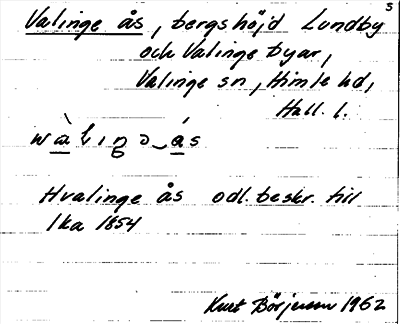 s
Valinge ås, bergshöjd Lundby
och Valinge byar,
Valinge sn, Himle hd,
Hall. l.
Hvalinge ås odl. beskr. till
lka 1854
Kurt Börjesson 1962